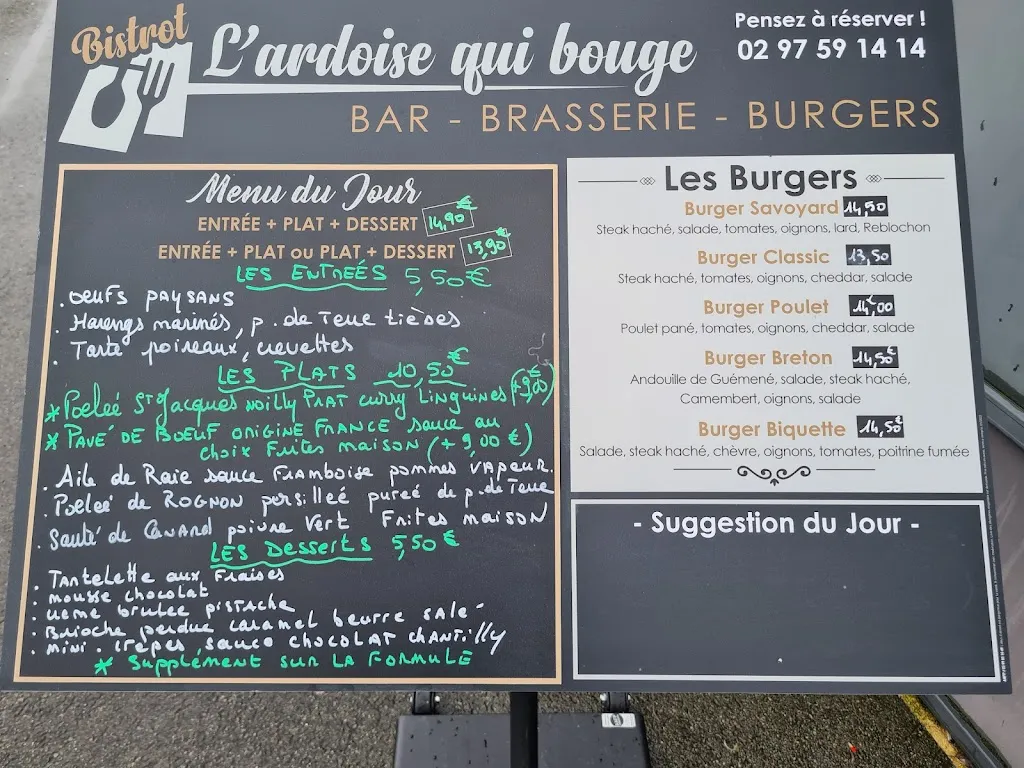 Bistrot
L'ardoise qui bouge
Pensez à réserver !
02 97 59 14 14
BAR - BRASSERIE - BURGERS
Menu du Jour
ENTRÉE + PLAT + DESSERT 14,90€
ENTRÉE + PLAT ou PLAT + DESSERT 13,90€
LES ENTREÉS 5,50€
. OEUFS PAYSANS
. Harengs marinés, p. de Terre tièdes
. Tarte poireaux, crevettes
LES PLATS 10,50€
* Poeleé St Jacques NOILLY PRAT curry Linguines (+9,00€)
* PAVÉ DE BOEUF ORIGINE FRANCE sauce au
choix Frites MAISON (+ 9,00 €)
. Aile de Raie sauce FRAMBOISE pommes VAPEUR.
. Poeleé de ROGNON persilleé pureé de p. de Terre
. Sauté de CANARD poivre Vert Frites maison
LES Desserts 5,50€
. TARTELETTE aux FRAISES
. mousse chocolat
. crème brulée PISTACHE
. Brioche perdue caramel beurre salé
. mini . crêpes sauce CHOCOLAT CHANTILLY
* Supplément SUR LA FORMULE
Les Burgers
Burger Savoyard 14,50
Steak haché, salade, tomates, oignons, lard, Reblochon
Burger Classic 13,50
Steak haché, tomates, oignons, cheddar, salade
Burger Poulet 14,00
Poulet pané, tomates, oignons, cheddar, salade
Burger Breton 14,50€
Andouille de Guémené, salade, steak haché,
Camembert, oignons, salade
Burger Biquette 14,50€
Salade, steak haché, chèvre, oignons, tomates, poitrine fumée
- Suggestion du Jour -